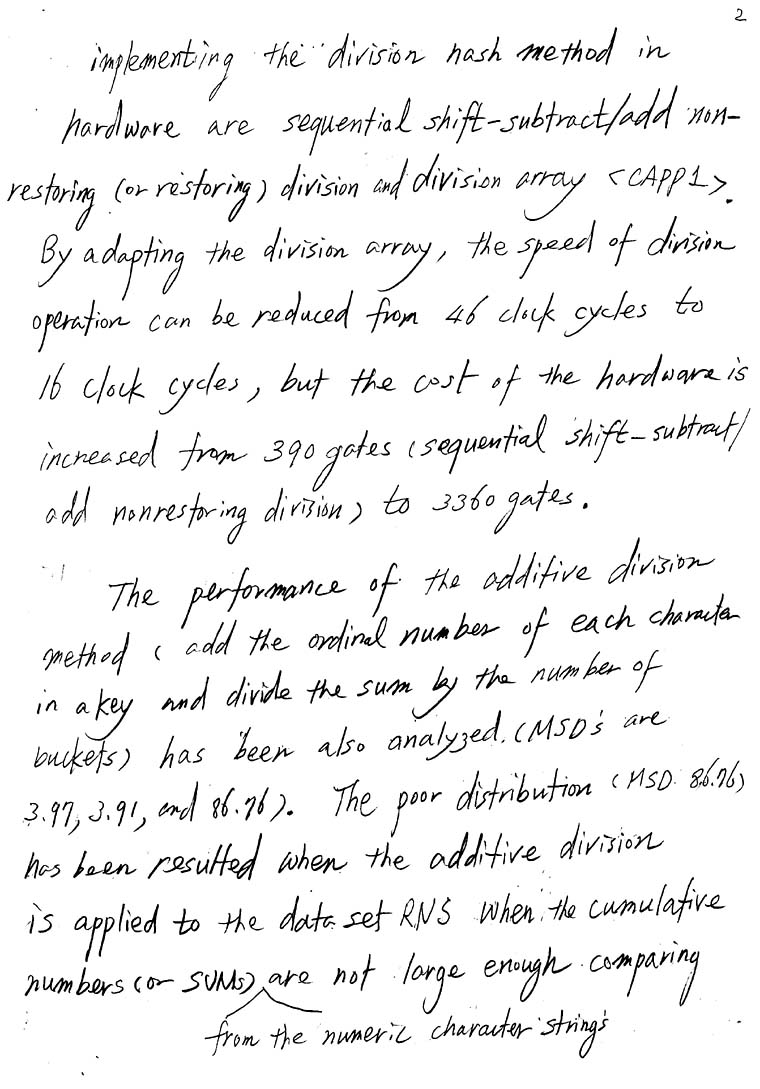 2
implementing the division hash method in
hardware are sequential shift-subtract/add non-
restoring (or restoring) division and division array <CAPP1>.
By adapting the division array, the speed of division
operation can be reduced from 46 clock cycles to
16 clock cycles, but the cost of the hardware is
increased from 390 gates (sequential shift-subtract/
add nonrestoring division) to 3360 gates.
The performance of the additive division
method (add the ordinal number of each character
in a key and divide the sum by the number of
buckets) has been also analyzed. (MSD's are
3.97, 3.91, and 86.76). The poor distribution (MSD: 86.76)
has been resulted when the additive division
is applied to the data set RNS when the cumulative
numbers (or SUMs) are not large enough comparing
from the numeric character string's